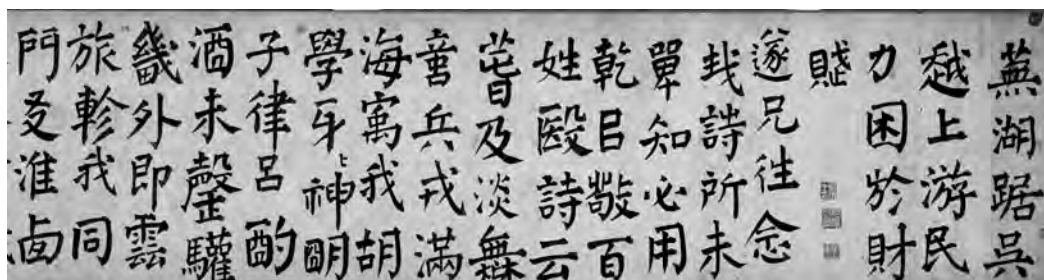 蕪湖踞吳
越上游民
力困於財
賦
遂兄往念
詩所未
單知必用
乾㠯敬百
姓毆詩云
及淡無
兵戎滿
海寓我胡
學牙神明
子律呂酌
酒未罄驩
畿外即雲
旅軫我同
門淮鹵